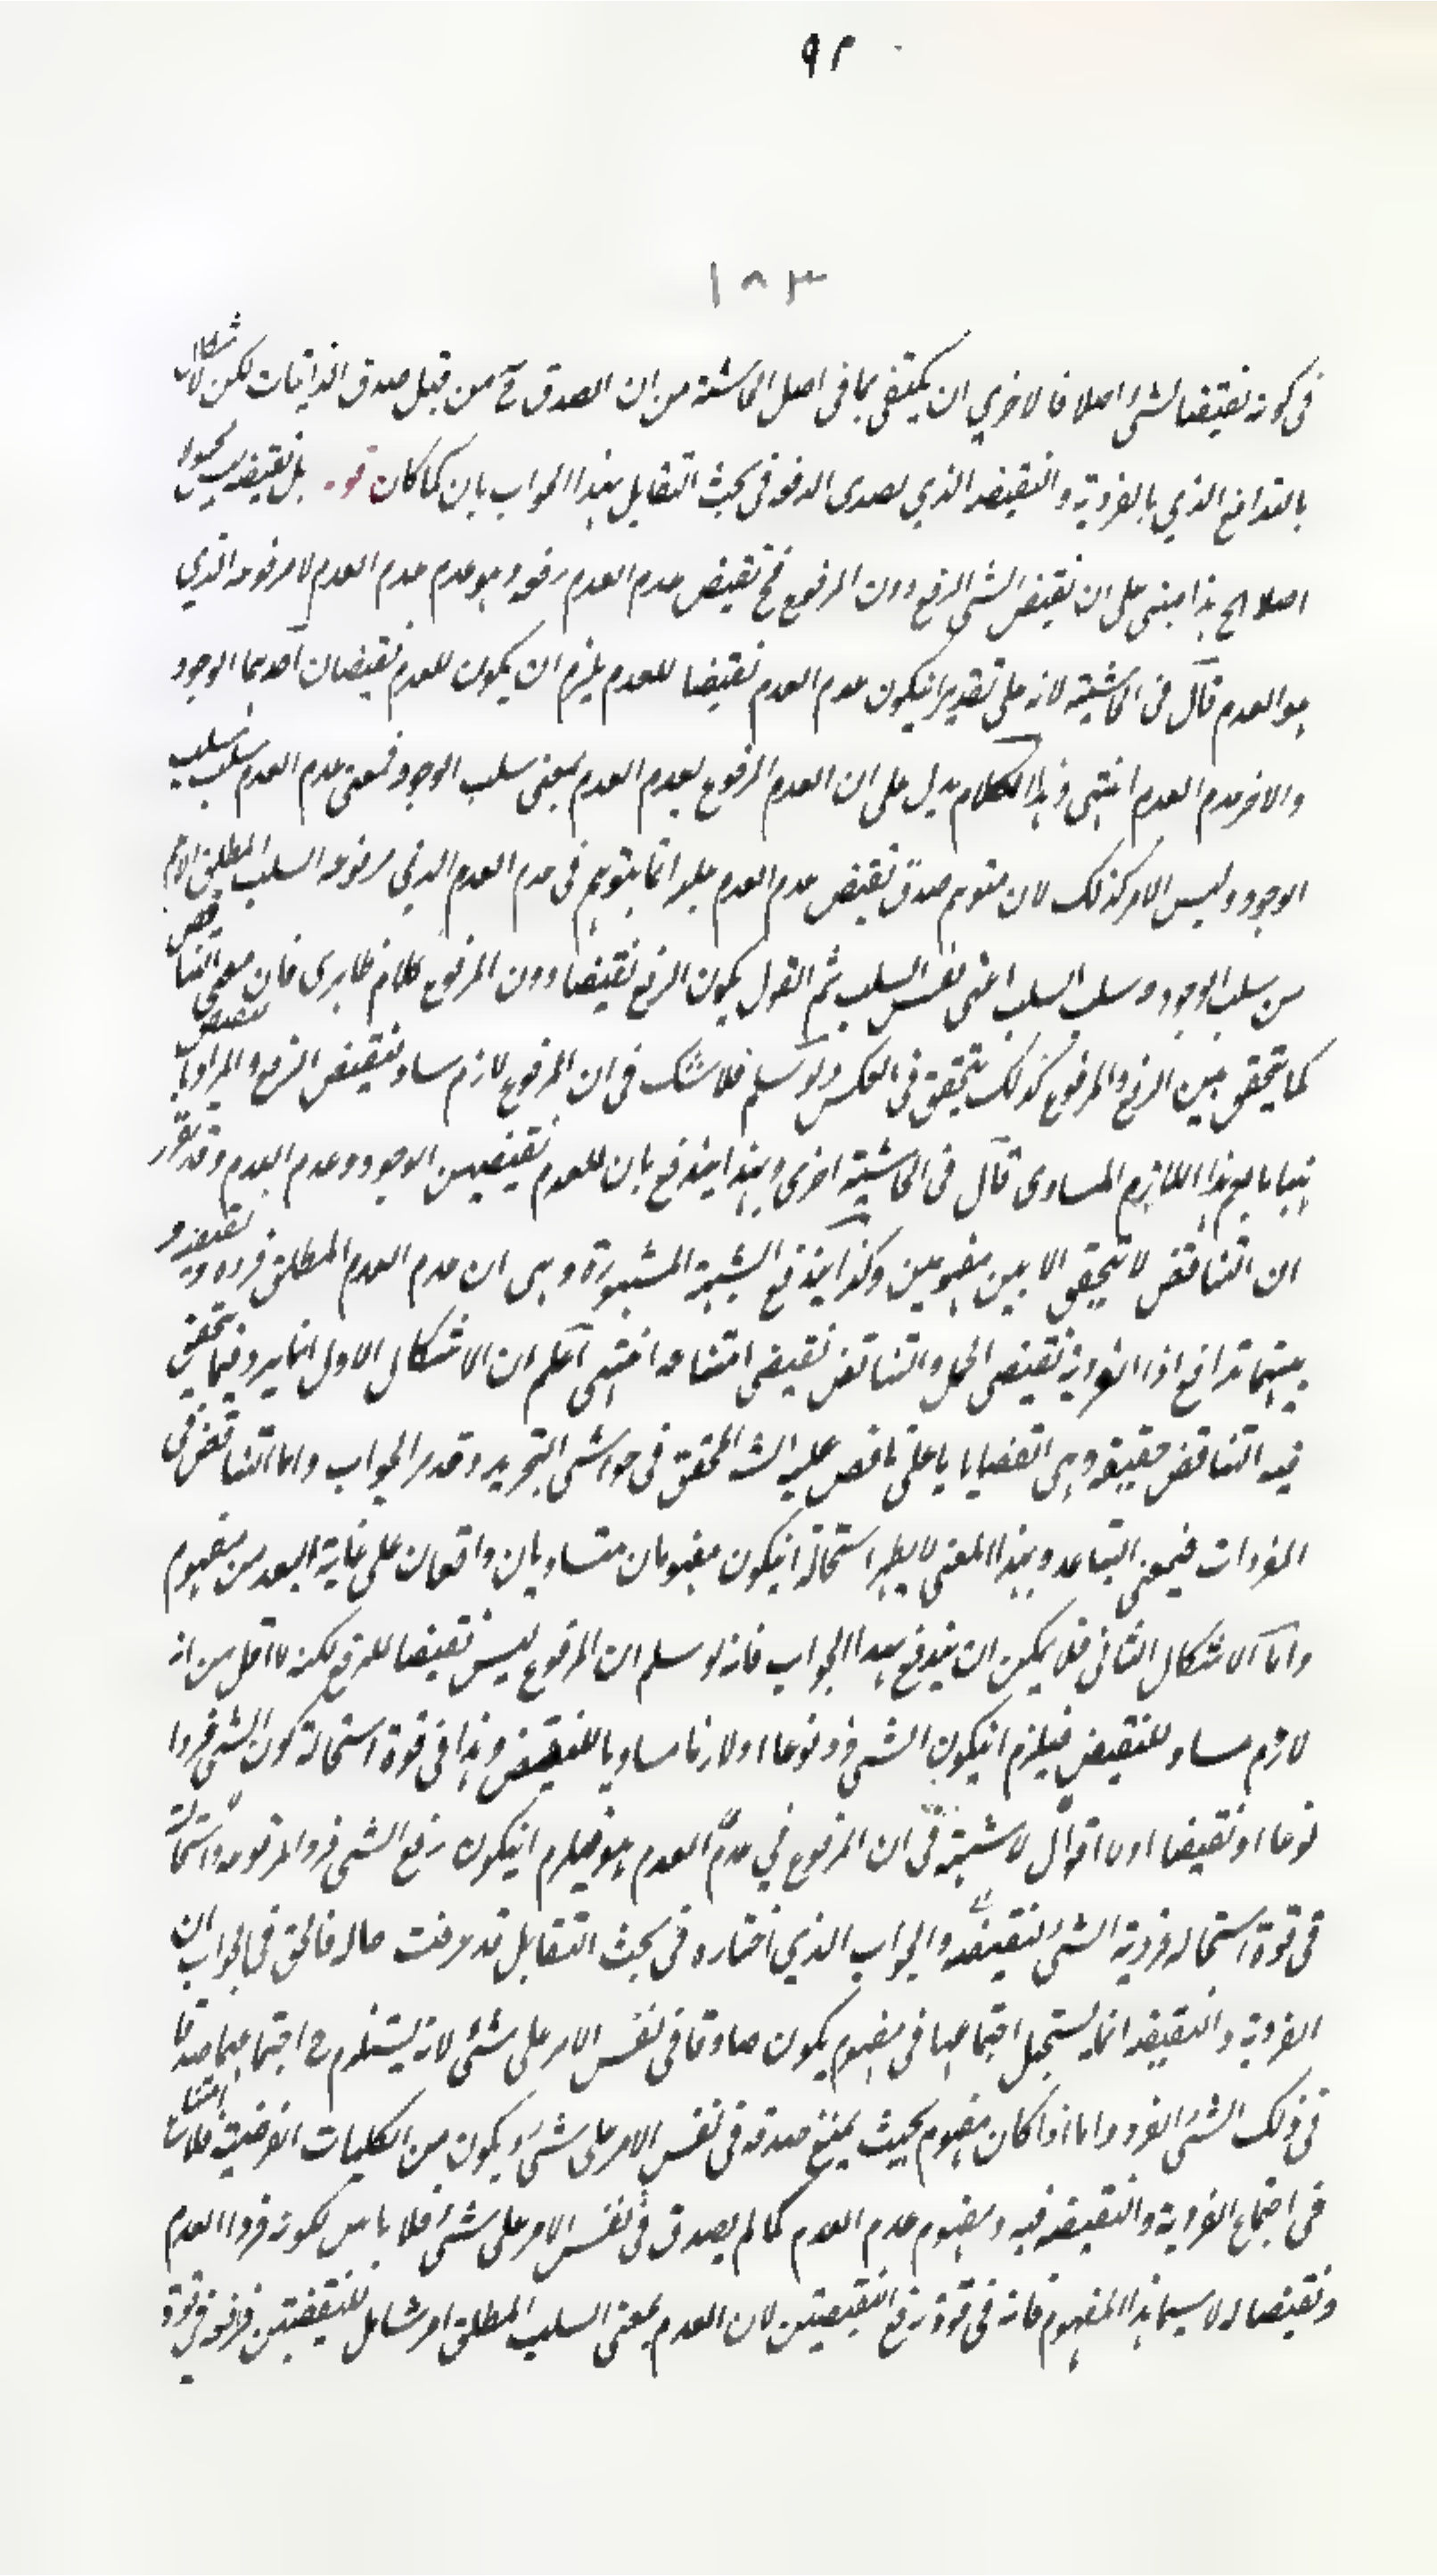 ٩٢
١٨٣
فى كونه نقيضا لشئ اصلا فالاخرى ان يكتفى بما فى اصل الحاشية من ان الصدق ح من قبل صدق الذاتيات لكن الاشكال
بالتدافع الذي بالفردية والنقيضه الذي لصدى الدفو فى بحث التقابل بهذا الجواب بان كما كان قوله بل نقيضه
اصلا الخ هذا مبنى على ان نقيض الشئ الرفع دون المرفوع فح نقيض عدم العدم رفعه وهو عدم عدم العدم لا مرفوعه الذي
هو العدم قال فى الحاشية لانه على تقدير انيكون عدم العدم نقيضا للعدم يلزم ان يكون للعدم نقيضان احدهما الوجود
والاخر عدم العدم انتهى وهذا الكلام يدل على ان العدم المرفوع لعدم العدم بمعنى سلب الوجود فمعنى عدم العدم سلب سلب
الوجود وليس الامر كذلك لان متوهم صدق نقيض عدم العدم عليه انما يتوهم فى عدم العدم الذي مرفوعه السلب المطلق الاعم
من سلب الوجود وسلب السلب اعنى نفس السلب ثم القول بكون الرفع نقيضا دون المرفوع كلام ظاهرى فان معنى التناقض
كما يتحقق بين الرفع والمرفوع كذلك يتحقق فى العكس ولو سلم فلا شك فى ان المرفوع لازم مساو لنقيض الرفع والمراد بالنقيض
ههنا ما يعم هذا اللازم المساوى قال فى الحاشية اخرى وبهذا يندفع بان للعدم نقيضين الوجود وعدم العدم وقد تقرر
ان التناقض لا يتحقق الا بين مفهومين وكذا يندفع الشبهة المشهورة وهى ان عدم العدم المطلق فرده ونقيضه و
بينهما تدافع اذ الفردية تقتضى الحمل والتناقض تقتضى امتناعه انتهى اعلم ان الاشكال الاول انما يرد فيما يتحقق
فيه التناقض حقيقة وهى القضايا على ما نص عليه الش المحقق فى حواشى التجريد وقد مر الجواب واما التناقض فى
المفردات فبمعنى التباعد وبهذا المعنى لا يظهر استحالة انيكون مفهومان متساويان واقعان على غاية البعد من مفهوم
واما الاشكال الثانى فلا يمكن ان يندفع بهذا الجواب فانه لو سلم ان المرفوع ليس نقيضا للرفع لكنه لا اقل من انه
لازم مساو للنقيض فيلزم انيكون الشئ فردا نوعا او لازما مساويا للنقيض وهذا فى قوة استحالة كون الشئ فردا
نوعا او نقيضا اولا اقول لا شبهة فى ان المرفوع في عدم العدم هو فيلزم انيكون رفع الشئ فردا لمرفوعه واستحالته
فى قوة استحاله فردية الشئ لنقيضه والجواب الذي اختاره فى بحث التقابل قد عرفت حاله فالحق فى الجواب ان
الفردية والنقيضه انما يستحيل اجتماعهما فى مفهوم يكون صادقا فى نفس الامر على شئ لانه يستلزم ح اجتماعهما صدقا
فى ذلك الشئ الفرد واما اذا كان مفهوم بحيث يمتنع صدقه فى نفس الامر على شئ ويكون من الكليات الفرضية فلا امتناع
فى اجتماع الفردية والنقيضه فيه ومفهوم عدم العدم كما لم يصدق فى نفس الامر على شئ فلا باس بكونه فردا العدم
ونقيضا له لا سيما هذا المفهوم فانه فى قوة رفع النقيضين لان العدم بمعنى السلب المطلق امر شامل للنقيضين فرفعه فى قوة